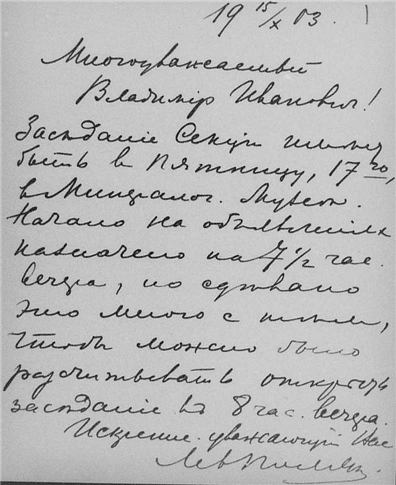 19 15/X 03.
Многоуважаемый
Владимір Ивановичъ!
Засѣданіе Секціи имѣетъ
быть въ Пятницу, 17го,
въ Минералог. Музеѣ.
Начало на объявленіяхъ
назначено на 7 1/2 час.
вечера, но сдѣлано
это много с тѣмъ,
чтобы можно было
разсчитывать открыть
засѣданіе въ 8 час. вечера.
Искренне уважающій Вас